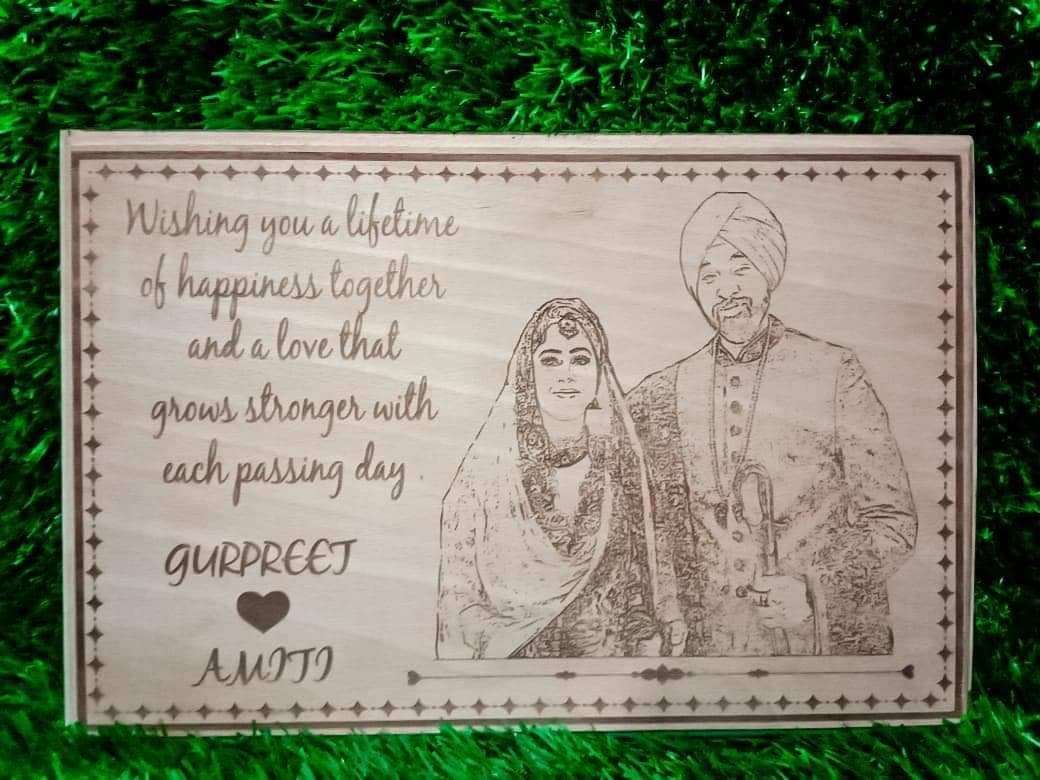 Wishing you a lifetime
of happiness together
and a love that
grows stronger with
each passing day.
GURPREET
AMITI